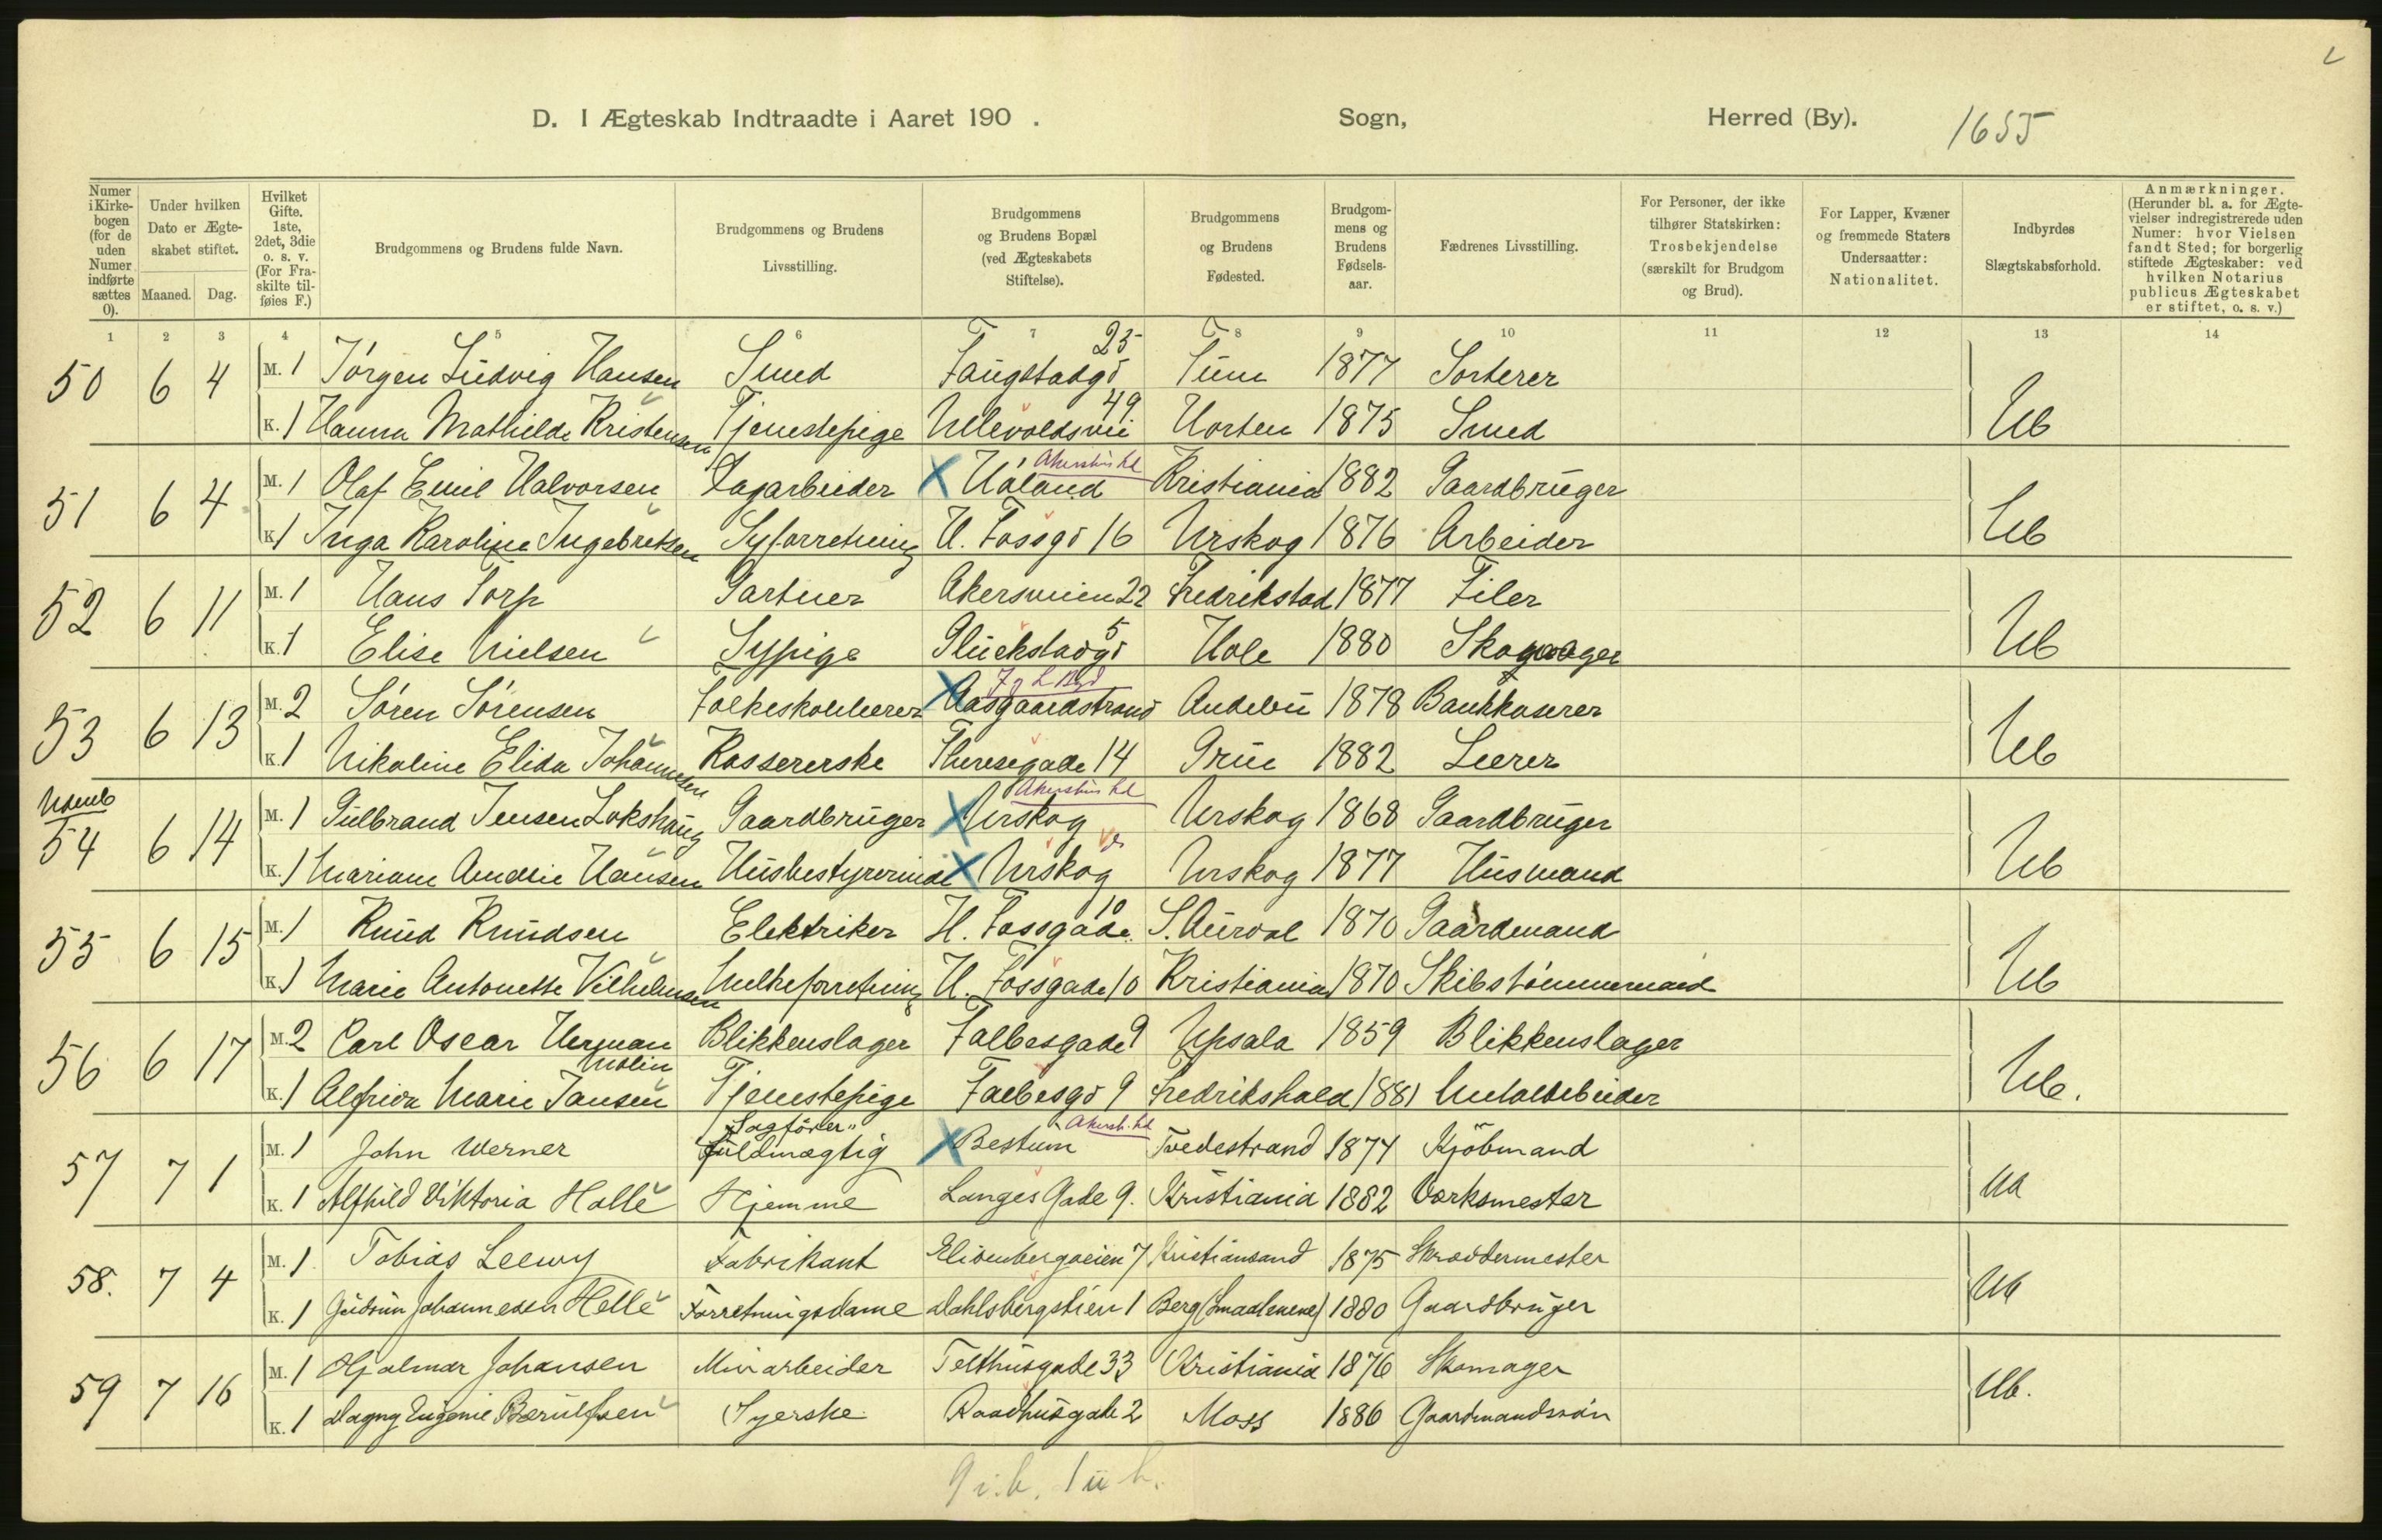 D. I Ægteskab Indtraadte i Aaret 190 . Sogn, Herred (By). 1655
Numer i Kirke-bogen (for de uden Numer indførte sættes 0).
Under hvilken Dato er Ægte-skabet stiftet.
Maaned. Dag.
Hvilket Gifte. 1ste, 2det, 3die o. s. v. (For Fra-skilte til-føies F.)
Brudgommens og Brudens fulde Navn.
Brudgommens og Brudens Livsstilling.
Brudgommens og Brudens Bopæl (ved Ægteskabets Stiftelse).
Brudgommens og Brudens Fødested.
Brudgom-mens og Brudens Fødsels-aar.
Fædrenes Livsstilling.
For Personer, der ikke tilhører Statskirken: Trosbekjendelse (særskilt for Brudgom og Brud).
For Lapper, Kvæner og fremmede Staters Undersaatter: Nationalitet.
Indbyrdes Slægtskabsforhold.
Anmærkninger. (Herunder bl. a. for Ægte-vielser indregistrerede uden Numer: hvor Vielsen fandt Sted; for borgerlig stiftede Ægteskaber: ved hvilken Notarius publicus Ægteskabet er stiftet, o. s. v.)
1 2 3 4 5 6 7 8 9 10 11 12 13 14
50 6 4 M. 1 Jörgen Ludvig Hansen Smed Faugstadgd 25 Tune 1877 Sorterer
K. 1 Hanna Mathilde Kristensen Tjenestepige Ullevoldsvei 49 Horten 1875 Smed Ub
51 6 4 M. 1 Olaf Emil Halvorsen Lagarbeider Håland Akershus Kristiania 1882 Gaardbruger
K. 1 Inga Karoline Ingebretsen Syforretning N. Fossgd 16 Urskog 1876 Arbeider Ub
52 6 11 M. 1 Hans Torp Gartner Akersveien 22 Fredrikstad 1877 Filer
K. 1 Elise Nielsen Sypige Gluckstadgd 5 Hole 1880 Skomager Ub
53 6 13 M. 2 Sören Sörensen Folkeskolelærer Aasgaardstrand Andebu 1878 Bankkaserer
K. 1 Nikoline Elida Johannesen Kassererske Theresegade 14 Grue 1882 Lærer Ub
54 6 14 M. 1 Gulbrand Jensen Lokshaug Gaardbruger Urskog Akershus Urskog 1868 Gaardbruger
K. 1 Mariane Amalie Hansen Husbestyrerinde Urskog Urskog 1877 Husmand Ub
55 6 15 M. 1 Knud Knudsen Elektriker N. Fossgade 10 S. Aurdal 1870 Gaardmand
K. 1 Marie Antonette Vilhelmsen Melkeforretning N. Fossgade 10 Kristiania 1870 Skibstömmermand Ub
56 6 17 M. 2 Carl Oscar Herman Molin Blikkenslager Falbesgade 9 Upsala 1859 Blikkenslager
K. 1 Alfrida Marie Jansen Tjenestepige Falbesgd 9 Fredrikshald 1881 Metalarbeider Ub.
57 7 1 M. 1 John Werner Sagförer fuldmægtig Bestum Akersh. Tvedestrand 1874 Kjöbmand
K. 1 Alfhild Viktoria Halle Hjemme Langes Gade 9. Kristiania 1882 Værksmester Ub
58. 7 4 M. 1 Tobias Leewy Fabrikant Elisenbergveien 7 Kristiansand 1875 Skræddermester
K. 1 Gudrun Johannesen Helle Forretningsdame Dahlsbergstien 1 Berg (Smaalenene) 1880 Gaardbruger Ub
59 7 16 M. 1 Hjalmar Johansen Murarbeider Telthusgade 33 Kristiania 1876 Skomager
K. 1 Dagny Eugenie Bærulfsen Syerske Raadhusgade 2 Moss 1886 Gaardmandssön Ub.
9 i. b. 1 u b.